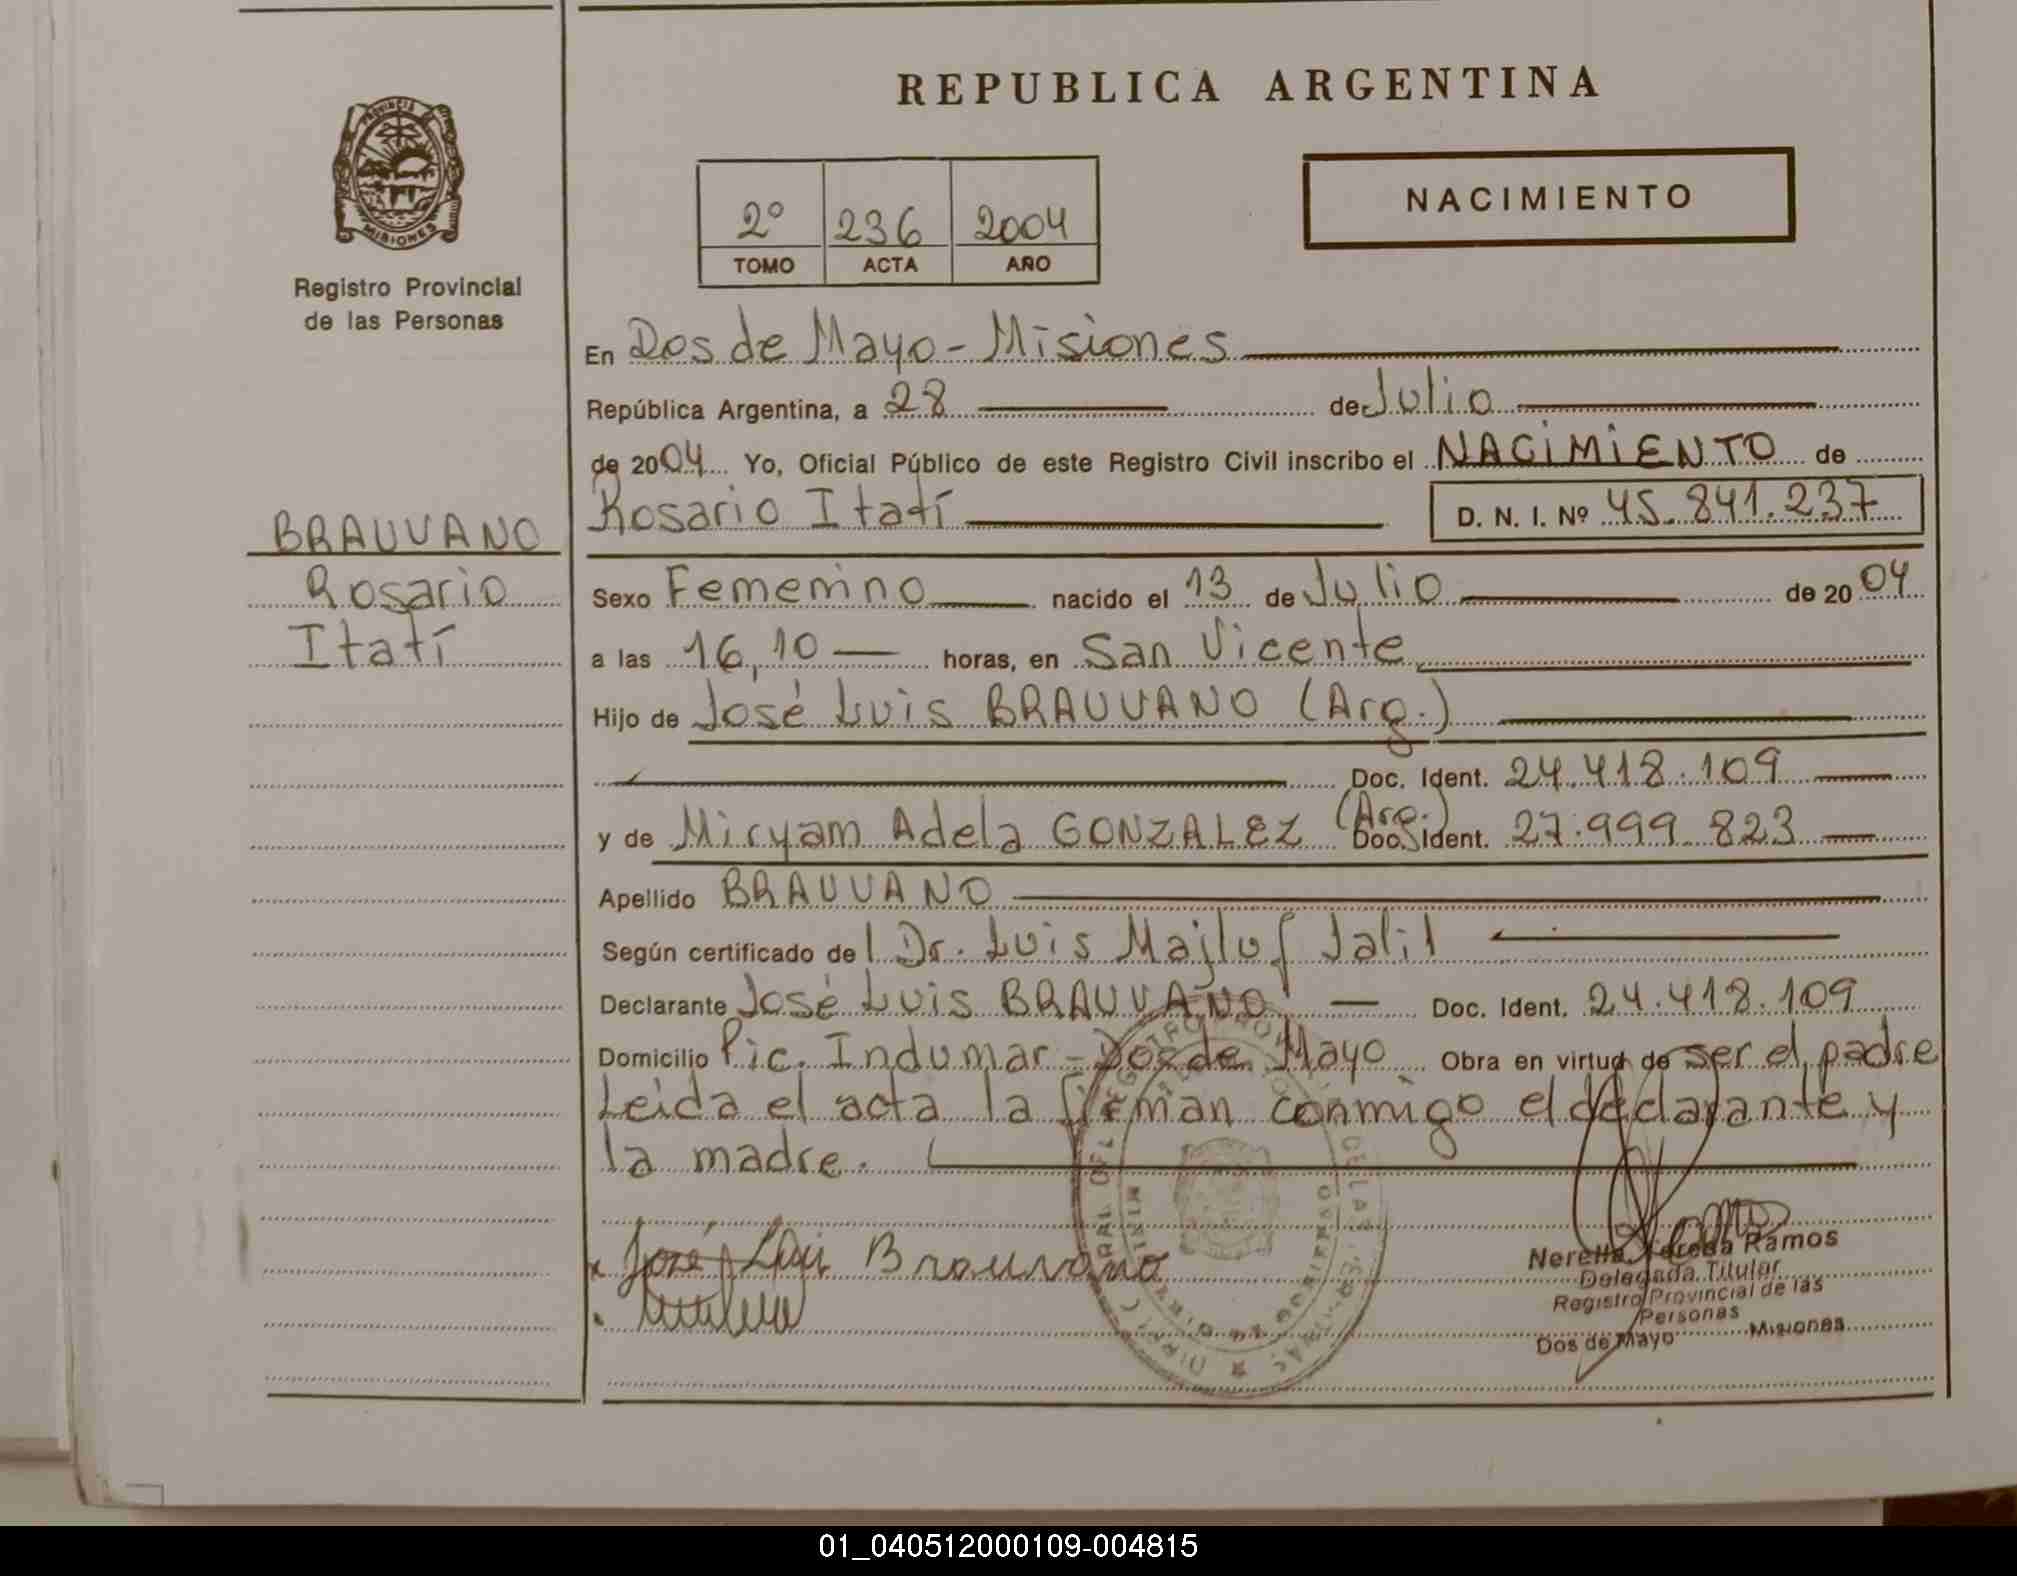 REPUBLICA ARGENTINA
PROVINCIA
MISIONES
Registro Provincial
de las Personas
2º 236 2004
TOMO ACTA AÑO
NACIMIENTO
En Dos de Mayo - Misiones
República Argentina, a 28 de Julio
de 2004 Yo, Oficial Público de este Registro Civil inscribo el NACIMIENTO de
Rosario Itatí D. N. I. Nº 45.841.237
BRAUVANO
Rosario
Itatí
Sexo Femenino nacido el 13 de Julio de 2004
a las 16,10 horas, en San Vicente
Hijo de José Luis BRAUVANO (Arg.)
Doc. Ident. 24.418.109
y de Miryam Adela GONZALEZ (Arg.) Doc. Ident. 27.999.823
Apellido BRAUVANO
Según certificado del Dr. Luis Majluf Jalil
Declarante José Luis BRAUVANO Doc. Ident. 24.418.109
Domicilio Pic. Indumar - Dos de Mayo Obra en virtud de ser el padre
Leida el acta la firman conmigo el declarante y
la madre.
José Luis Brauvano
Nerella Teresa Ramos
Delegada Titular
Registro Provincial de las
Personas
Dos de Mayo Misiones
01_040512000109-004815